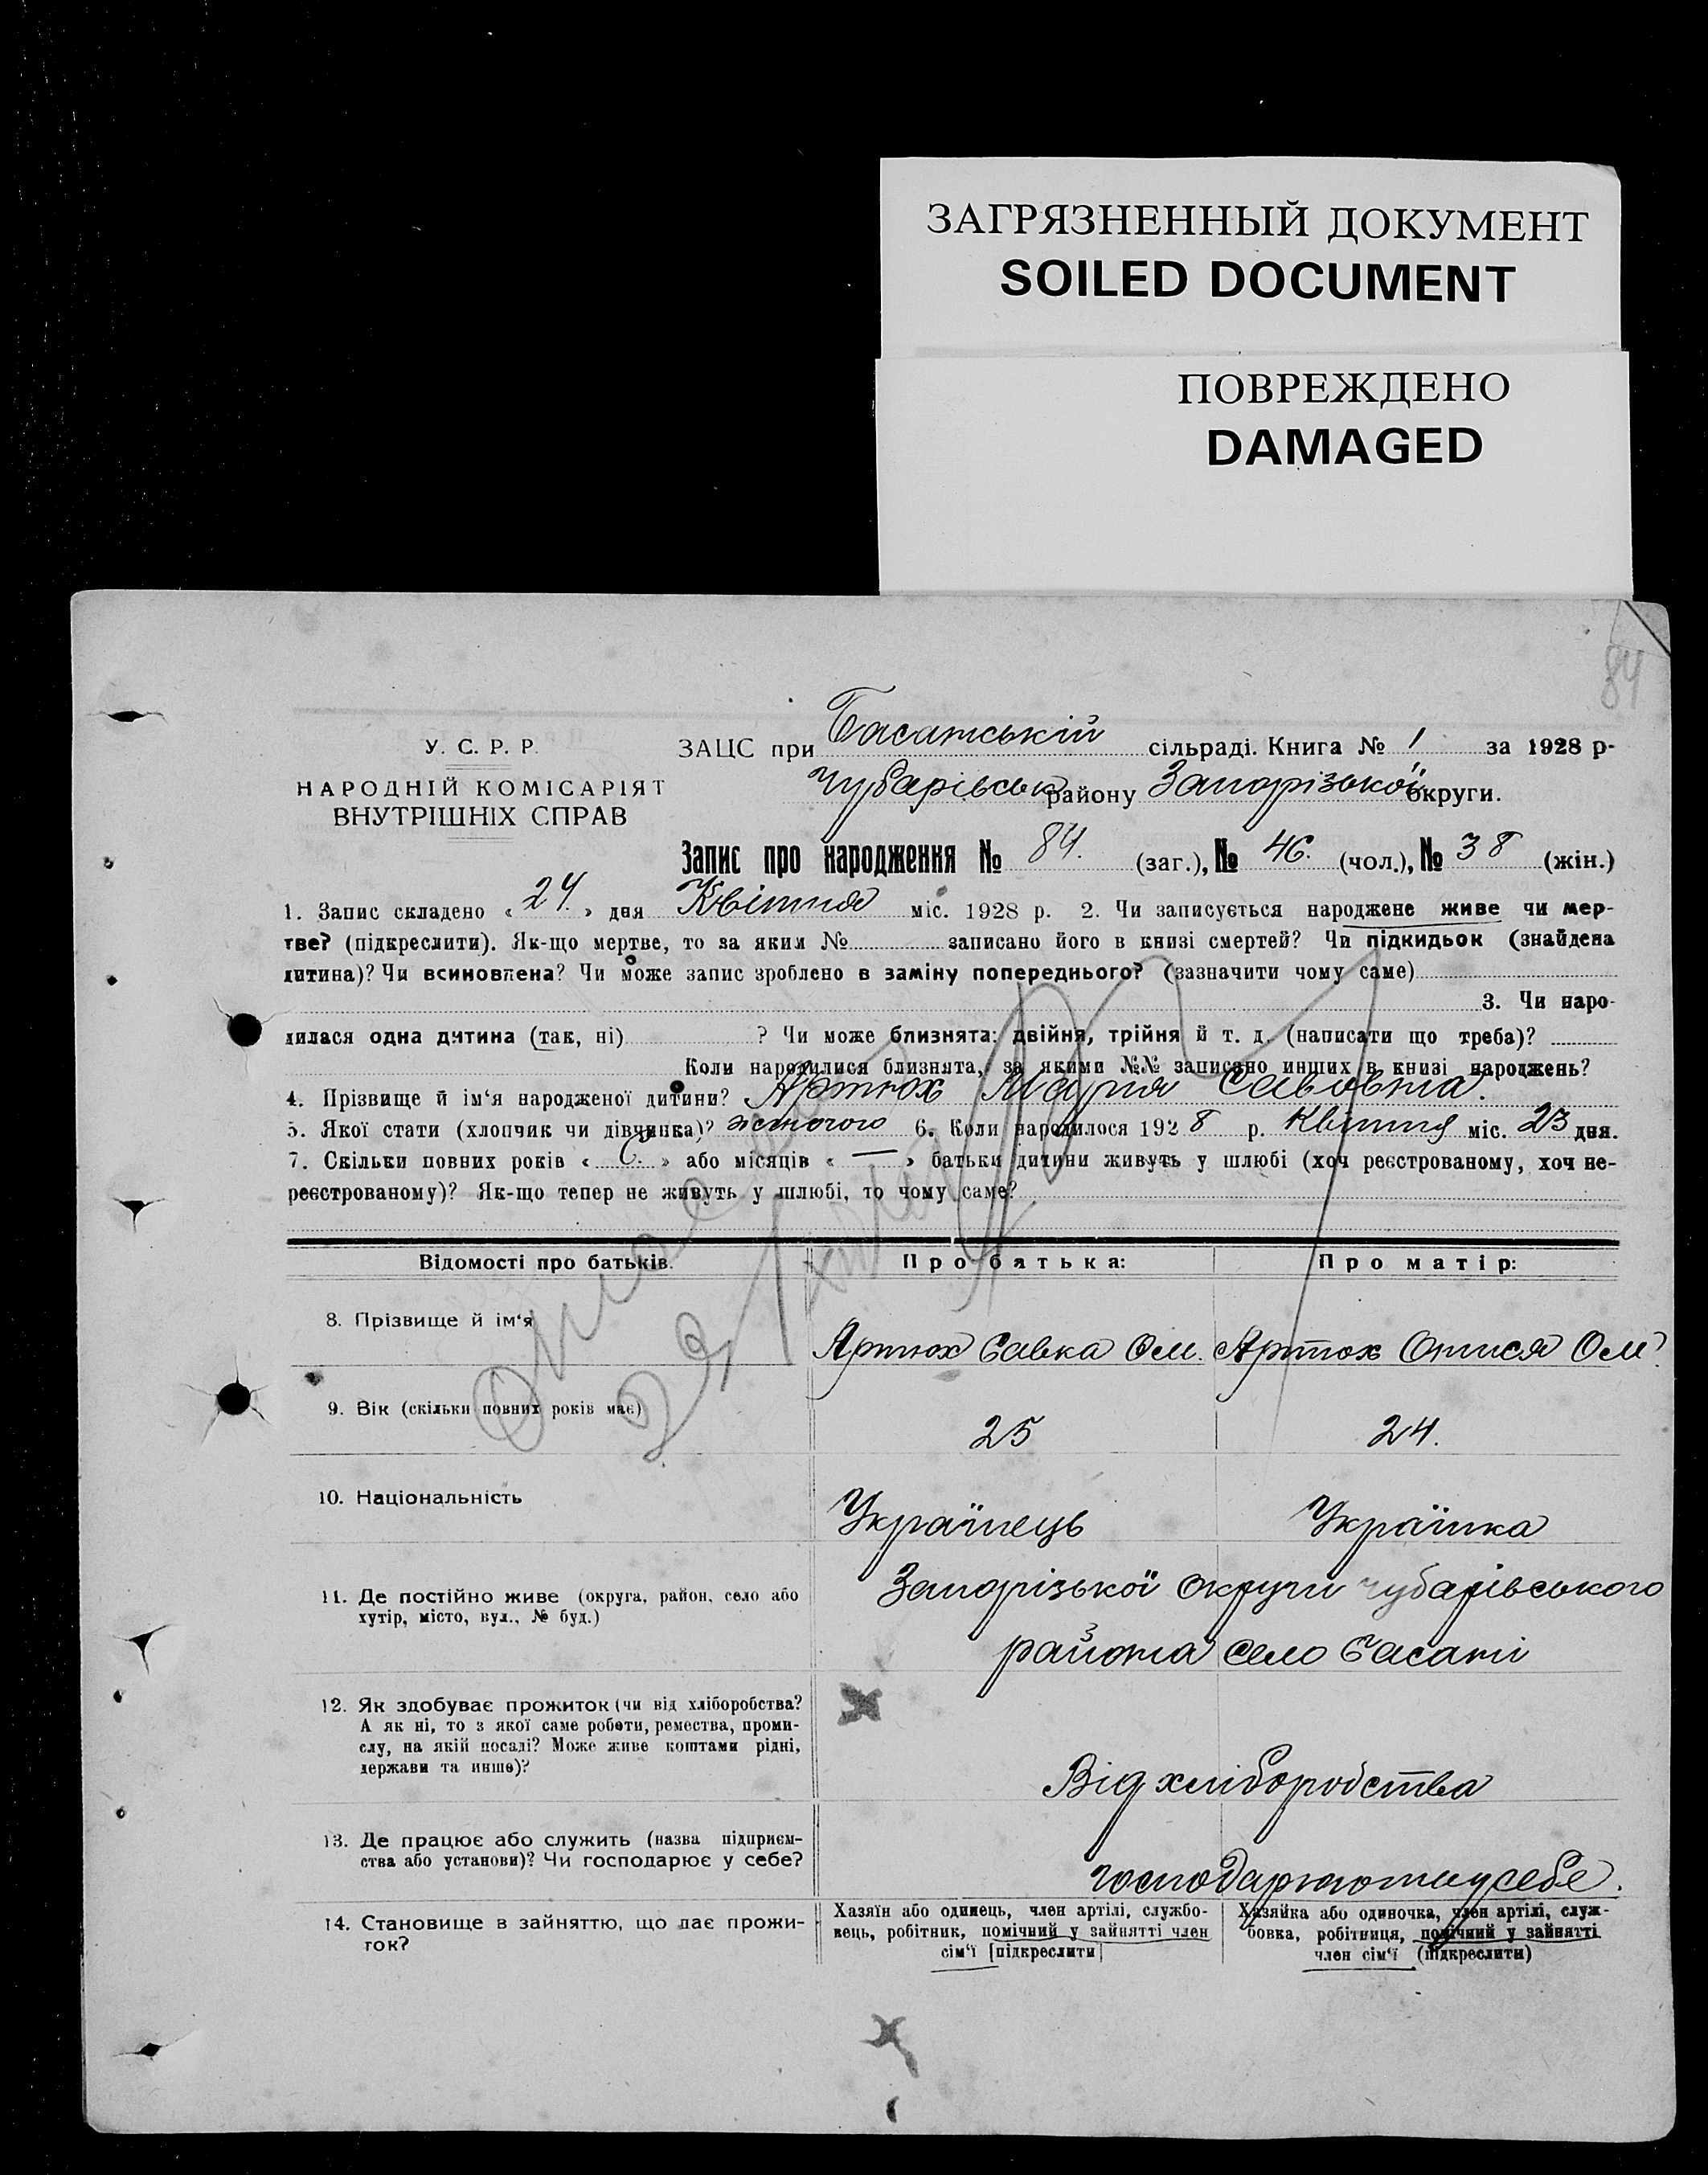 ЗАГРЯЗНЕННЫЙ ДОКУМЕНТ
SOILED DOCUMENT
ПОВРЕЖДЕНО
DAMAGED
84
У. С. Р. Р.
НАРОДНІЙ КОМІСАРІЯТ
ВНУТРІШНІХ СПРАВ
ЗАЦС при Басанській сільраді. Книга № 1 за 1928 р-
Чубарівськ району Запорізької округи.
Запис про народження № 84. (заг.), № 46. (чол.), № 38 (жін.)
1. Запис складено « 24. » дня Квітня міс. 1928 р. 2. Чи записується народжене живе чи мер-
тве? (підкреслити). Як-що мертве, то за яким № записано його в книзі смертей? Чи підкидьок (знайдена
дитина)? Чи всиновлена? Чи може запис зроблено в заміну попереднього? (зазначити чому саме)
3. Чи наро-
дилася одна дитина (так, ні) ? Чи може близнята: двійня, трійня й т. д. (написати що треба)?
Коли народилися близнята, за якими №№ записано инших в книзі народжень?
4. Прізвище й ім‘я народженої дитини? Артюх Марія Савовна.
5. Якої стати (хлопчик чи дівчинка)? жіночого 6. Коли народилося 1928 р. Квітня міс. 23 дня.
7. Скільки повних років « 6. » або місяців « — » батьки дитини живуть у шлюбі (хоч реєстрованому, хоч не-
реєстрованому)? Як-що тепер не живуть у шлюбі, то чому саме?
Відомості про батьків. Про батька: Про матір:
8. Прізвище й ім‘я Артюх Савка Ом. Артюх Онися Ом.
9. Вік (скільки повних років має) 25 24.
10. Національність Українець Українка
11. Де постійно живе (округа, район, село або
хутір, місто, вул., № буд.)
Запорізької округи чубарівського
района село Басані
12. Як здобуває прожиток (чи від хліборобства?
А як ні, то з якої саме роботи, ремества, проми-
слу, на якій посаді? Може живе коштами рідні,
держави та инше)?
Від хліборобства
13. Де працює або служить (назва підприєм-
ства або установи)? Чи господарює у себе?
господарюють у себе.
14. Становище в зайняттю, що дає прожи-
ток?
Хазяїн або одинець, член артілі, службо-
вець, робітник, помічний у зайнятті член
сім‘ї [підкреслити]
Хазяйка або одиночка, член артілі, служ-
бовка, робітниця, помічний у зайнятті
член сім‘ї (підкреслити)